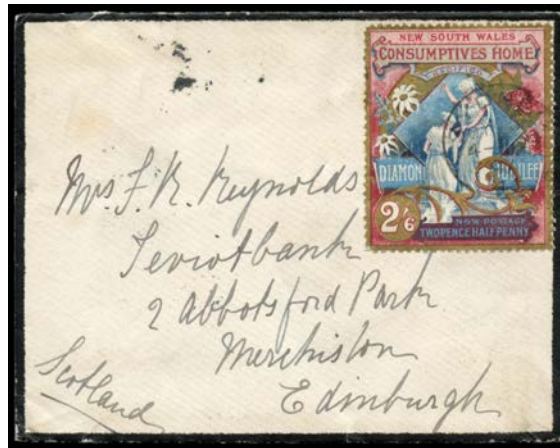 NEW SOUTH WALES
CONSUMPTIVES HOME
DIAMOND JUBILEE
2/6
NSW POSTAGE
TWOPENCE HALF PENNY
Mrs F. R. Reynolds
Teviotbank
2 Abbotsford Park
Merchiston
Edinburgh
Scotland